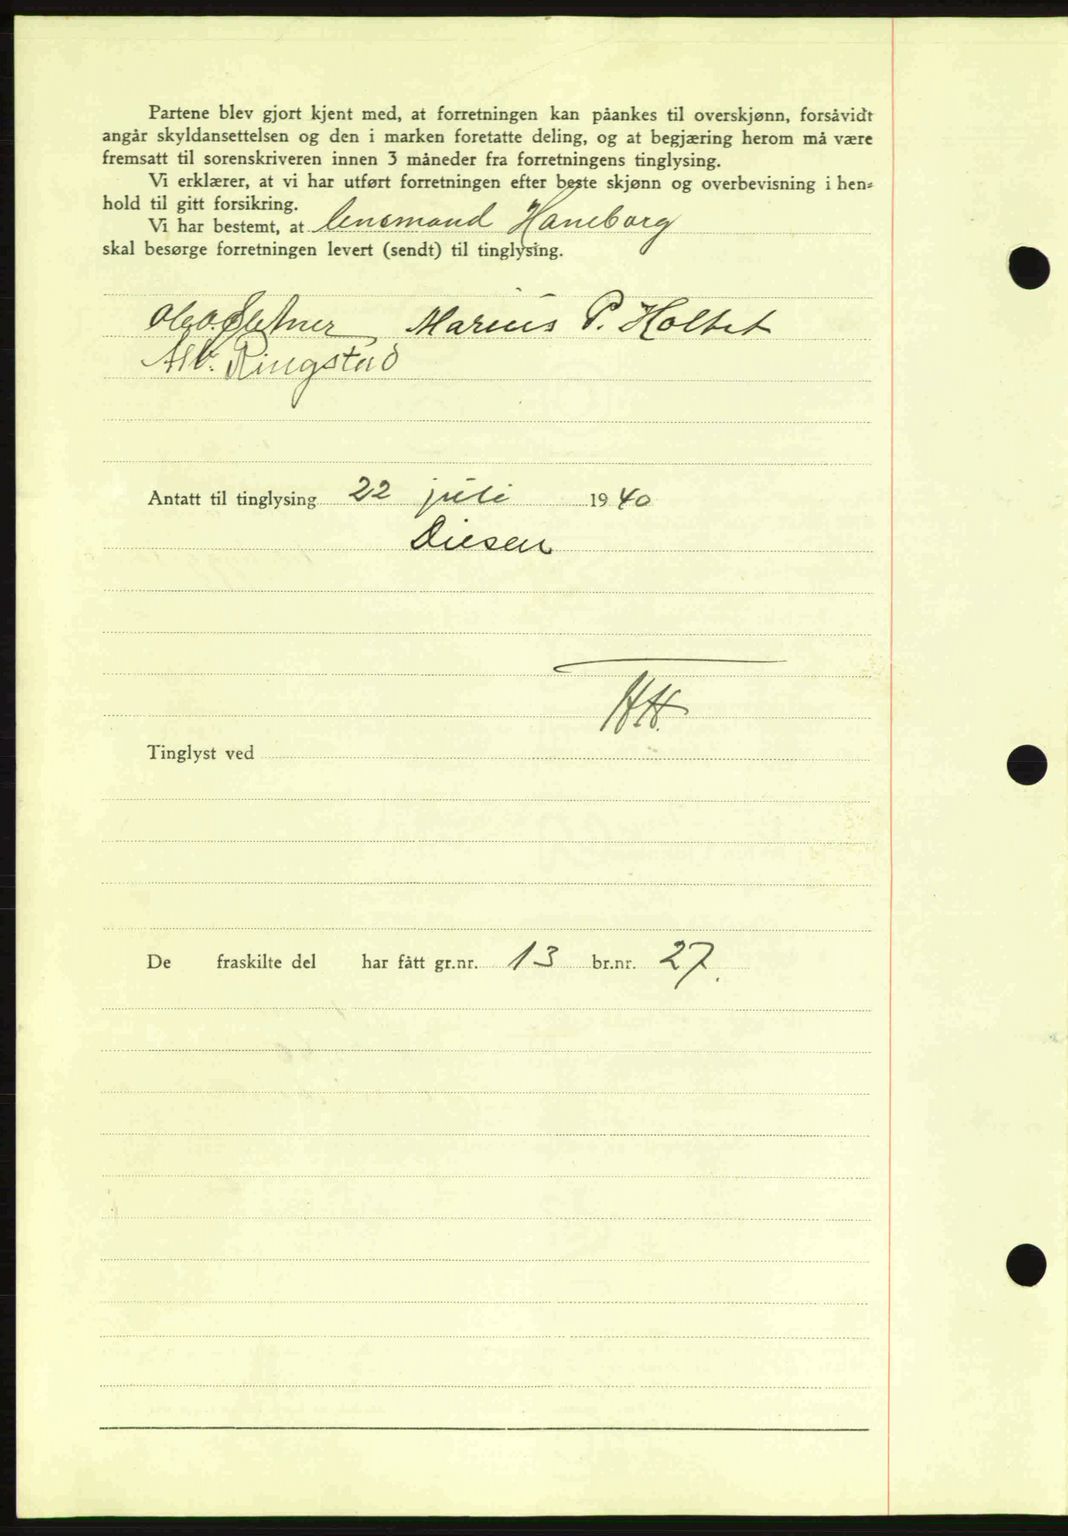 Partene blev gjort kjent med, at forretningen kan påankes til overskjønn, forsåvidt
angår skyldansettelsen og den i marken foretatte deling, og at begjæring herom må være
fremsatt til sorenskriveren innen 3 måneder fra forretningens tinglysing.
Vi erklærer, at vi har utført forretningen efter beste skjønn og overbevisning i hen-
hold til gitt forsikring.
Vi har bestemt, at lensmand Haneborg
skal besørge forretningen levert (sendt) til tinglysing.
Marius P. Holtet
Alv. Ringstad
Antatt til tinglysing 22 juli 1940
Diesen
HH.
Tinglyst ved
De fraskilte del har fått gr.nr. 13 br.nr. 27.